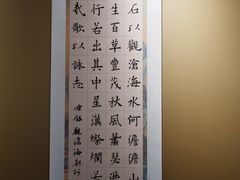 石以觀滄海水何澹澹山
生百草豐茂秋風蕭瑟洪
行若出其中星漢燦爛若
哉歌以詠志
觀滄海